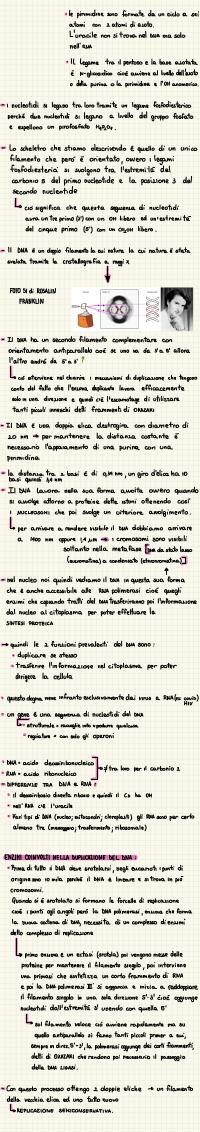 • le pirimidine sono formate da un ciclo a sei
atomi con 2 atomi di azoto.
L'uracile non si trova nel DNA ma solo
nell'RNA
• Il legame tra il pentoso e la base azotata
è N-glicosidico cioè avviene al livello dell'azoto
o della purina o la primidina e l'OH anomerico.
→ i nucleotidi si legano tra loro tramite un legame fosfodiesterico
perché due nucleotidi si legano a livello del gruppo fosfato
e espellono un profosfato
→ Lo scheletro che stiamo descrivendo è quello di un unico
filamento che però è orientato, ovvero i legami
fosfodiesterici si svolgono tra l'estremità del
carbonio 5 del primo nucleotide e la posizione 3 del
secondo nucleotide
ciò significa che questa sequenza di nucleotidi
avrà un tre primo (3') con un OH libero ed un'estremità
del cinque primo (5') con un libero.
→ Il DNA è un doppio filamento la cui natura la cui natura è stata
svelata tramite la cristallografia a raggi X
FOTO 51 di ROSALIN
FRANKLIN
→ Il DNA ha un secondo filamento complementare con
orientamento antiparallelo cioè se uno va da 5' a 3' allora
l'altro andrà da 3' a 5'
ciò avviene nel chiarire i meccanismi di duplicazione che tengono
conto del fatto che l'enzima duplicante lavora efficacemente
solo in una direzione e quindi c'è l'escamotage di utilizzare
tanti piccoli inneschi detti frammenti di OKAZAKI
→ Il DNA è una doppia elica destrogira con diametro di
20 nm → per mantenere la distanza costante è
necessario l'appaiamento di una purina con una
pirimidina
→ la distanza tra 2 basi è di 0,34 nm, un giro d'elica ha 10
basi quindi 3,4 nm
→ Il DNA lavora nella sua forma svolta ovvero quando
si avvolge attorno a proteine dette istoni ottenendo così
i nucleosomi che poi svolge un ulteriore avvolgimento.
per arrivare a rendere visibile il DNA dobbiamo arrivare
a 1400 nm oppure 1,4 µm → i cromosomi sono visibili
soltanto nella metafase
(eucromatina) a condensato (eterocromatina)
→ nel nucleo noi quindi vediamo il DNA in questa sua forma
che è anche accessibile alle RNA polimerasi cioè quegli
enzimi che copiando tratti del DNA trasferiranno poi l'informazione
dal nucleo al citoplasma per poter effettuare la
SINTESI PROTEICA
→ quindi le 2 funzioni prevalenti del DNA sono:
• duplicare se stesso
• trasferire l'informazione nel citoplasma per poter
dirigere la cellula
• questo dogma viene infranto esclusivamente dai virus a RNA (es covid)
HIV
• un gene è una sequenza di nucleotidi del DNA
strutturale =
regolare = con solo gli operoni
• DNA = acido deossiribonucleico
• RNA = acido ribonucleico
• DIFFERENZE TRA DNA e RNA:
• il deossiribosio diventa ribosio e quindi il C2 ha OH
• nell'RNA c'è l'uracile
• Vari tipi di DNA (nucleo; mitocondri; cloroplasti) gli RNA sono per certo
almeno tre (messaggero; trasferimento; ribosomale)
ENZIMI COINVOLTI NELLA DUPLICAZIONE DEL DNA:
• Prima di tutto il DNA deve srotolarsi, negli eucarioti i punti di
origine sono 10 mila perché il DNA è lineare e si trova in più
cromosomi.
Quando si è srotolato si formano le forcelle di replicazione
cioè i punti agli angoli però la DNA polimerasi, enzima che forma
la nuova catena di DNA, necessita di un complesso di enzimi
detto complesso di replicazione
primo enzima è un elicasi (srotola) poi vengono messe delle
proteine per mantenere il filamento singolo, poi interviene
una primasi che sintetizza un corto frammento di RNA
e poi la DNA polimerasi III si aggancia e inizia a raddoppiare
il filamento singolo in una sola direzione 5'-3' cioè aggiunge
nucleotidi dall'estremità 3' usando con quello 5'
sul filamento veloce ciò avviene rapidamente ma su
quello antiparallelo si fanno tanti piccoli primer e qui,
sempre in direz. 5'-3', la polimerasi aggiunge dei corti frammenti,
detti di OKAZAKI che rendono poi necessario il passaggio
della DNA LIGASI.
→ Con questo processo ottengo 2 doppie eliche → un filamento
della vecchia elica ed uno tutto nuovo
↳ REPLICAZIONE SEMICONSERVATIVA.